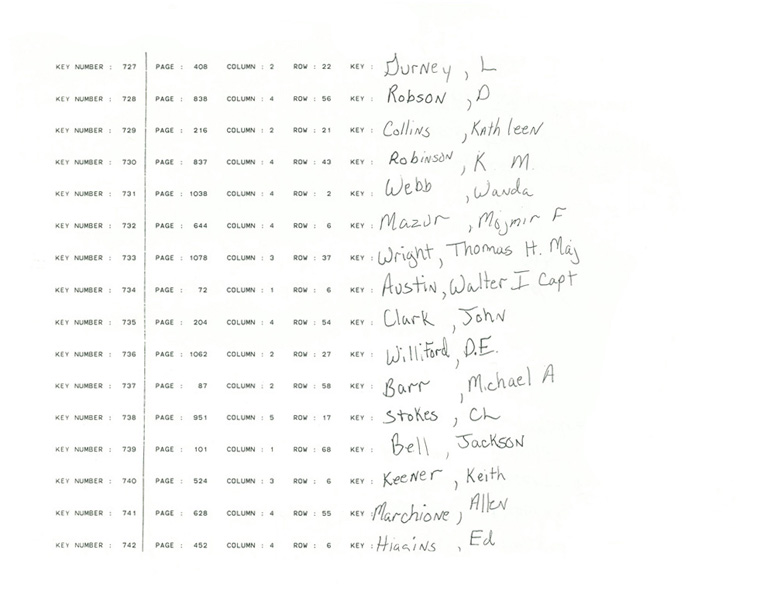 KEY NUMBER : 727 PAGE : 408 COLUMN : 2 ROW : 22 KEY : Gurney, L
KEY NUMBER : 728 PAGE : 838 COLUMN : 4 ROW : 56 KEY : Robson, D
KEY NUMBER : 729 PAGE : 216 COLUMN : 2 ROW : 21 KEY : Collins, Kathleen
KEY NUMBER : 730 PAGE : 837 COLUMN : 4 ROW : 43 KEY : Robinson, K M.
KEY NUMBER : 731 PAGE : 1038 COLUMN : 4 ROW : 2 KEY : Webb, Wanda
KEY NUMBER : 732 PAGE : 644 COLUMN : 4 ROW : 6 KEY : Mazur, Mojmir F
KEY NUMBER : 733 PAGE : 1078 COLUMN : 3 ROW : 37 KEY : Wright, Thomas H. Maj
KEY NUMBER : 734 PAGE : 72 COLUMN : 1 ROW : 6 KEY : Austin, Walter I Capt
KEY NUMBER : 735 PAGE : 204 COLUMN : 4 ROW : 54 KEY : Clark, John
KEY NUMBER : 736 PAGE : 1062 COLUMN : 2 ROW : 27 KEY : Williford, D.E.
KEY NUMBER : 737 PAGE : 87 COLUMN : 2 ROW : 58 KEY : Barr, Michael A
KEY NUMBER : 738 PAGE : 951 COLUMN : 5 ROW : 17 KEY : Stokes, CL
KEY NUMBER : 739 PAGE : 101 COLUMN : 1 ROW : 68 KEY : Bell, Jackson
KEY NUMBER : 740 PAGE : 524 COLUMN : 3 ROW : 6 KEY : Keener, Keith
KEY NUMBER : 741 PAGE : 628 COLUMN : 4 ROW : 55 KEY : Marchione, Allen
KEY NUMBER : 742 PAGE : 452 COLUMN : 4 ROW : 6 KEY : Higgins, Ed